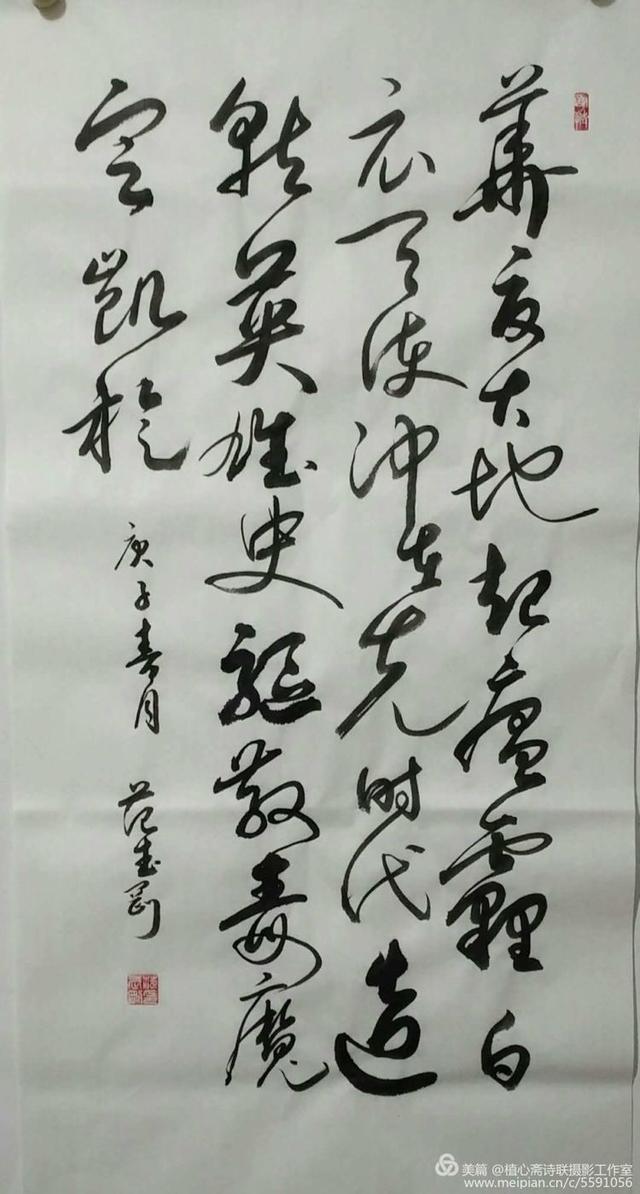 華夏大地起瘟霾白
衣天使冲在先时代造
就英雄史驅散毒魔
定凱旋
庚子春月 范
美篇 @植心斋诗联摄影工作室
www.meipian.cn/c/5591056